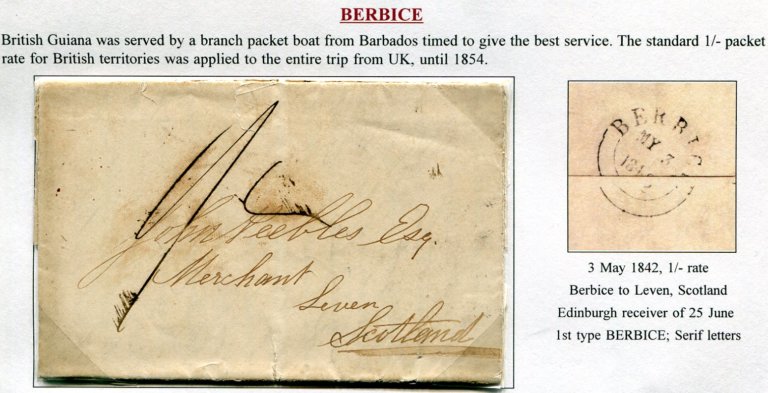 BERBICE
British Guiana was served by a branch packet boat from Barbados timed to give the best service. The standard 1/- packet
rate for British territories was applied to the entire trip from UK, until 1854.
John Peebles Esq.
Merchant
Leven
Scotland
BERBIC
MY 3
184
3 May 1842, 1/- rate
Berbice to Leven, Scotland
Edinburgh receiver of 25 June
1st type BERBICE; Serif letters